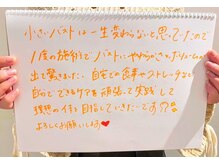 小さいバストは一生変わらないと思ってたので
1度の施術でバストにやわらかさとボリュームが
出て驚きました。自宅での食事やストレッチなど
自分でできるケアを頑張って実践して
理想のバストを目指していきたいです!!
よろしくお願いします♥